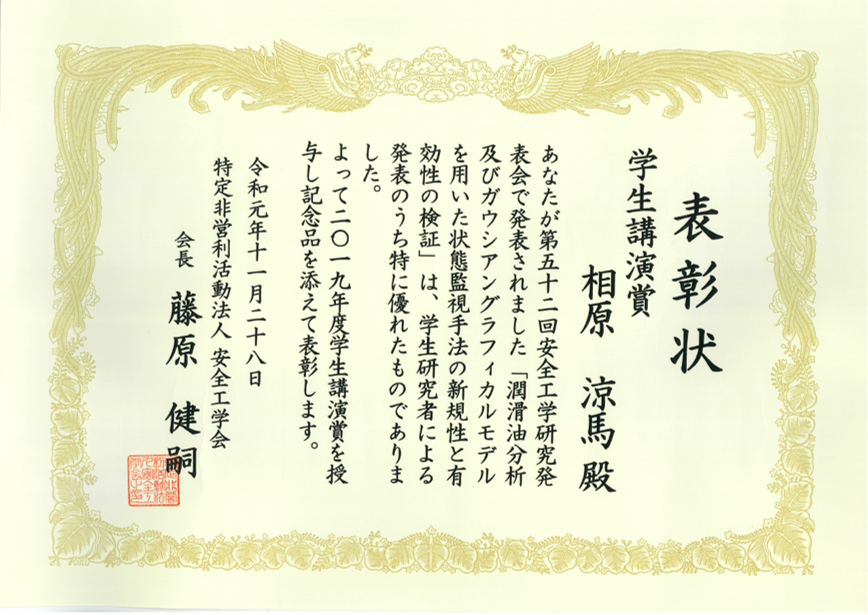 表彰状
学生講演賞
相原 涼馬 殿
あなたが第五十二回安全工学研究発
表会で発表されました「潤滑油分析
及びガウシアングラフィカルモデル
を用いた状態監視手法の新規性と有
効性の検証」は、学生研究者による
発表のうち特に優れたものでありま
した。
よって二〇一九年度学生講演賞を授
与し記念品を添えて表彰します。
令和元年十一月二十八日
特定非営利活動法人 安全工学会
会長 藤原 健嗣